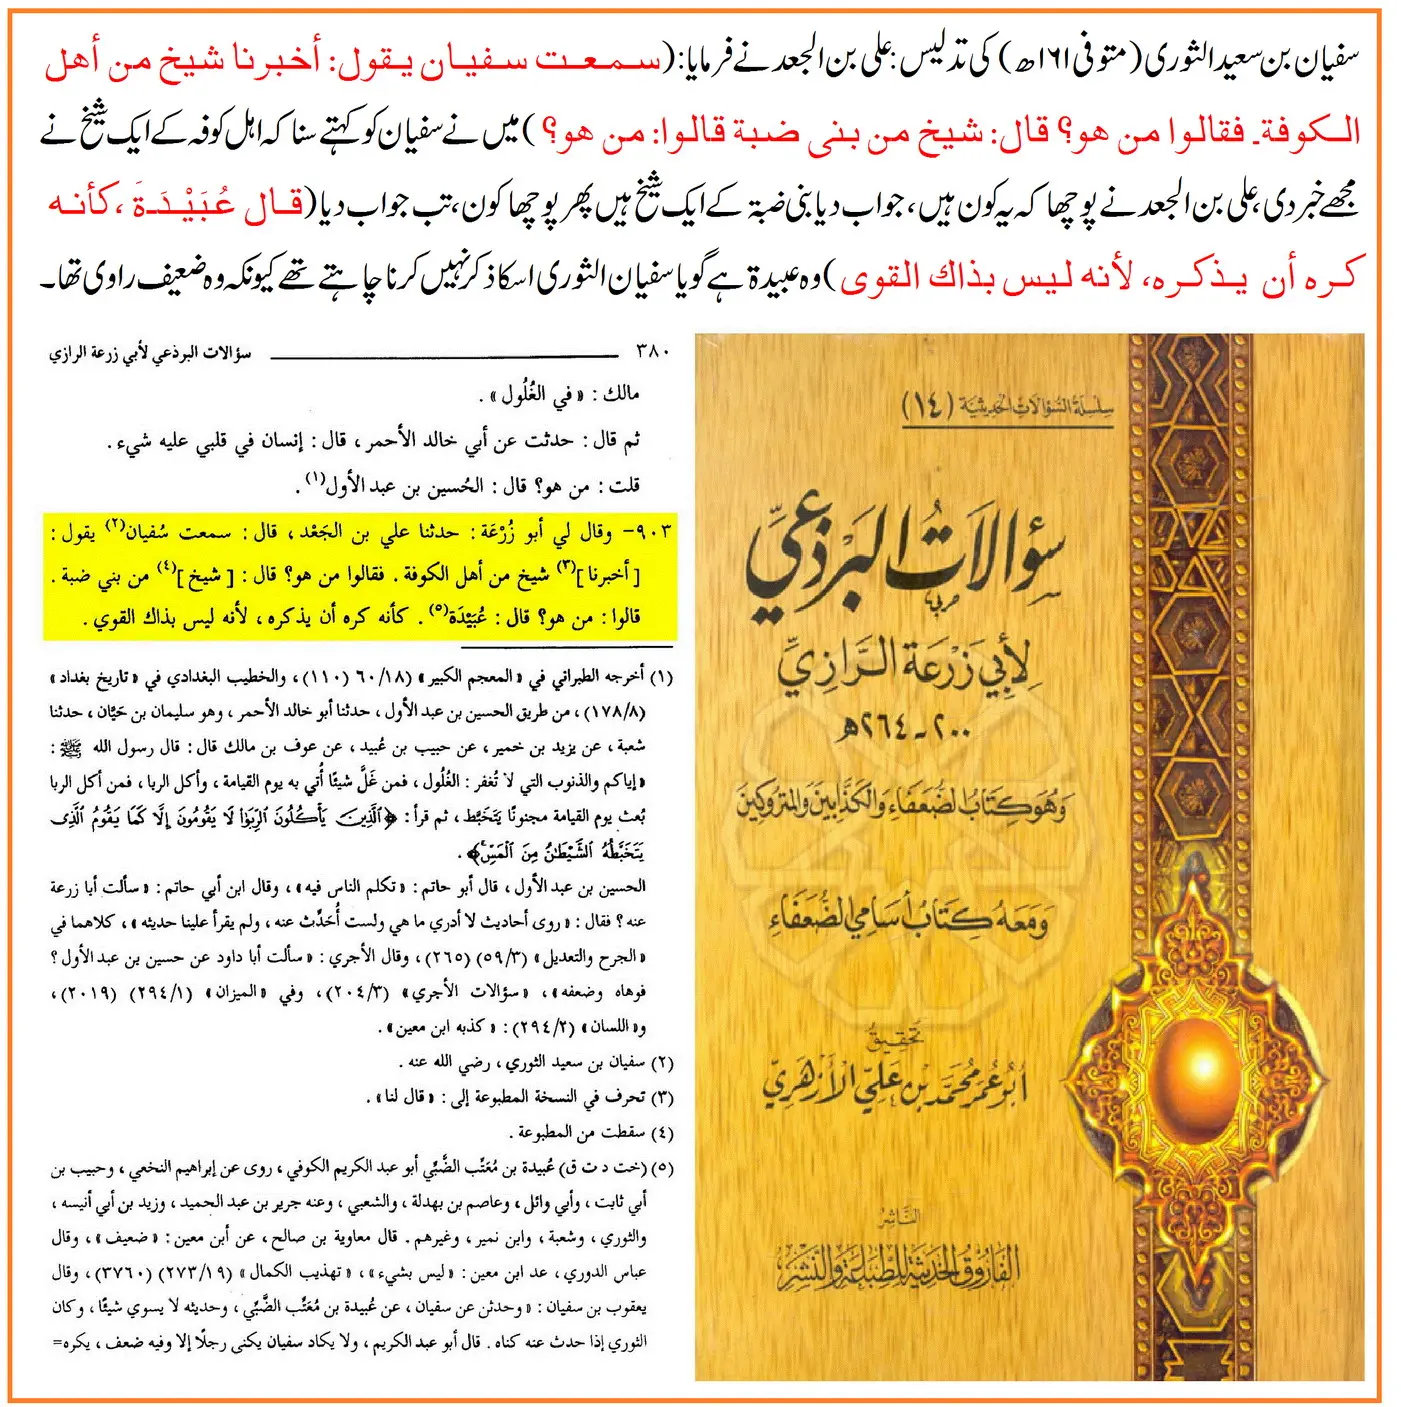 سفیان بن سعید الثوری (متوفی ۱۶۱ھ) کی تدلیس: علی بن الجعد نے فرمایا: (سمعت سفيان يقول: أخبرنا شيخ من أهل
الكوفة۔ فقالوا من هو؟ قال: شيخ من بنى ضبة قالوا: من هو؟) میں نے سفیان کو کہتے سنا کہ اہل کوفہ کے ایک شیخ نے
مجھے خبر دی، علی بن الجعد نے پوچھا کہ یہ کون ہیں، جواب دیا بنی ضبۃ کے ایک شیخ ہیں پھر پوچھا کون، تب جواب دیا (قال عُبَيْدَةَ، كأنه
كره أن يذكره، لأنه ليس بذاك القوى) وہ عبیدۃ ہے گویا سفیان الثوری اسکا ذکر نہیں کرنا چاہتے تھے کیونکہ وہ ضعیف راوی تھا۔
٣٨٠ سؤالات البرذعي لأبي زرعة الرازي
مالك : « في الغُلُول » .
ثم قال : حدثت عن أبي خالد الأحمر ، قال : إنسان في قلبي عليه شيء .
قلت : من هو؟ قال : الحُسين بن عبد الأول(١) .
٩٠٣- وقال لي أبو زُرْعَة : حدثنا علي بن الجَعْد ، قال : سمعت سُفيان(٢) يقول :
[ أخبرنا ](٣) شيخ من أهل الكوفة . فقالوا من هو؟ قال : [ شيخ ](٤) من بني ضبة .
قالوا : من هو؟ قال : عُبَيْدَة(٥) . كأنه كره أن يذكره ، لأنه ليس بذاك القوي .
(١) أخرجه الطبراني في « المعجم الكبير » (٦٠/١٨) (١١٠) ، والخطيب البغدادي في « تاريخ بغداد »
(١٧٨/٨) ، من طريق الحسين بن عبد الأول ، حدثنا أبو خالد الأحمر ، وهو سليمان بن حَيَّان ، حدثنا
شعبة ، عن يزيد بن خمير ، عن حبيب بن عُبيد ، عن عوف بن مالك قال : قال رسول الله ﷺ :
« إياكم والذنوب التي لا تُغفر : الغُلُول ، فمن غَلَّ شيئًا أُتي به يوم القيامة ، وأكل الربا ، فمن أكل الربا
بُعث يوم القيامة مجنونًا يَتخبَّط ، ثم قرأ : ﴿ٱلَّذِينَ يَأْكُلُونَ ٱلرِّبَوٰا۟ لَا يَقُومُونَ إِلَّا كَمَا يَقُومُ ٱلَّذِى
يَتَخَبَّطُهُ ٱلشَّيْطَٰنُ مِنَ ٱلْمَسِّ﴾ .
الحسين بن عبد الأول ، قال أبو حاتم : « تكلم الناس فيه » ، وقال ابن أبي حاتم : « سألت أبا زرعة
عنه ؟ فقال : « روى أحاديث لا أدري ما هي ولست أُحَدِّث عنه ، ولم يقرأ علينا حديثه » ، كلاهما في
« الجرح والتعديل » (٥٩/٣) (٢٦٥) ، وقال الآجري : « سألت أبا داود عن حسين بن عبد الأول ؟
فوهاه وضعفه » ، « سؤالات الآجري » (٢٠٤/٣) ، وفي « الميزان » (٢٩٤/١) (٢٠١٩) ،
و« اللسان » (٢٩٤/٢) : « كذبه ابن معين » .
(٢) سفيان بن سعيد الثوري ، رضي الله عنه .
(٣) تحرف في النسخة المطبوعة إلى : « قال لنا » .
(٤) سقطت من المطبوعة .
(٥) (خت د ت ق) عُبيدة بن مُعَتِّب الضَّبِّي أبو عبد الكريم الكوفي ، روى عن إبراهيم النخعي ، وحبيب بن
أبي ثابت ، وأبي وائل ، وعاصم بن بهدلة ، والشعبي ، وعنه جرير بن عبد الحميد ، وزيد بن أبي أنيسه ،
والثوري ، وشعبة ، وابن نمير ، وغيرهم . قال معاوية بن صالح ، عن أبن معين : « ضعيف » ، وقال
عباس الدوري ، عد ابن معين : « ليس بشيء » ، « تهذيب الكمال » (٢٧٣/١٩) (٣٧٦٠) ، وقال
يعقوب بن سفيان : « وحدثن عن سفيان ، عن عُبيدة بن مُعَتِّب الضَّبِّي ، وحديثه لا يسوي شيئًا ، وكان
الثوري إذا حدث عنه كناه . قال أبو عبد الكريم ، ولا يكاد سفيان يكنى رجلًا إلا وفيه ضعف ، يكره=
سلسلة السؤالات الحديثية (١٤)
سؤالات البرذعي
لأبي زرعة الرازي
٢٠٠ - ٢٦٤هـ
وهو كتاب الضعفاء والكذابين والمتروكين
ومعه كتاب أسامي الضعفاء
تحقيق
أبو عمر محمد بن علي الأزهري
الناشر
الفاروق الحديثة للطباعة والنشر